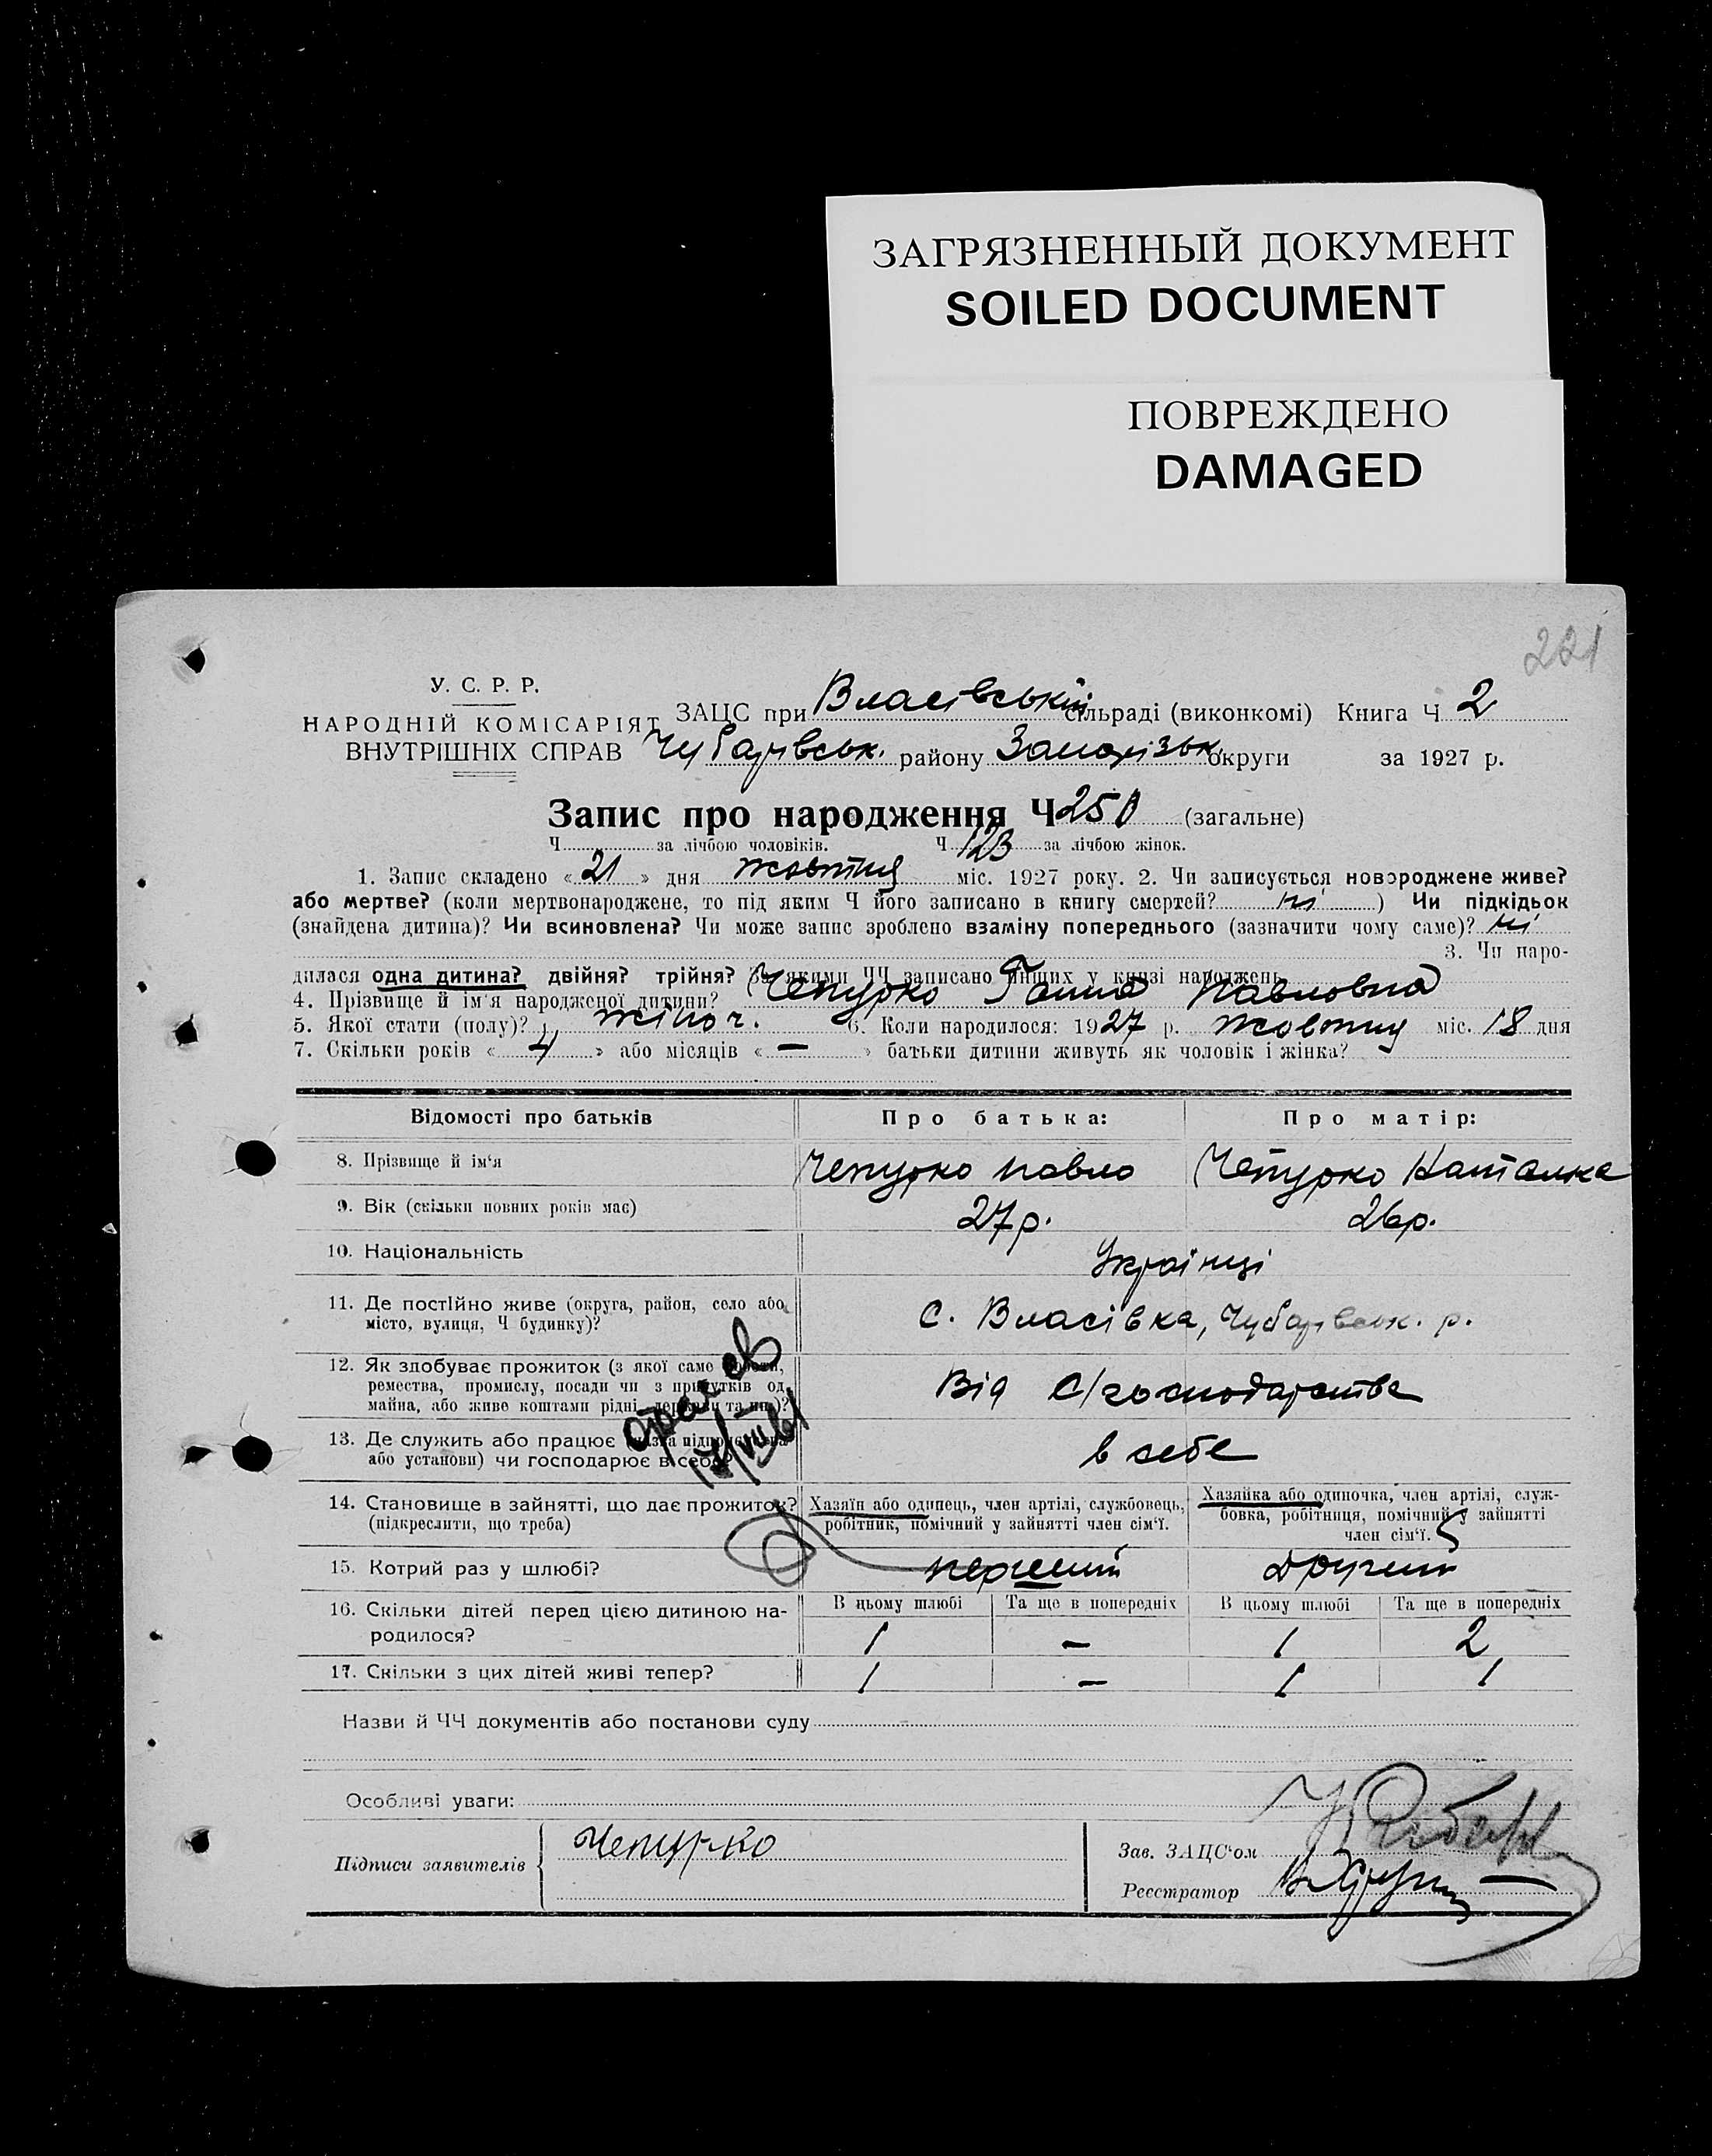 ЗАГРЯЗНЕННЫЙ ДОКУМЕНТ
SOILED DOCUMENT
ПОВРЕЖДЕНО
DAMAGED
221
У. С. Р. Р.
НАРОДНІЙ КОМІСАРІЯТ
ВНУТРІШНІХ СПРАВ
ЗАЦС при Власівській сільраді (виконкомі) Книга Ч 2
Чубарівськ. району Запорізьк. округи за 1927 р.
Запис про народження Ч 250 (загальне)
Ч за лічбою чоловіків. Ч 123 за лічбою жінок.
1. Запис складено «21» дня жовтня міс. 1927 року. 2. Чи записується новороджене живе?
або мертве? (коли мертвонароджене, то під яким Ч його записано в книгу смертей? ні ) Чи підкідьок
(знайдена дитина)? Чи всиновлена? Чи може запис зроблено взаміну попереднього (зазначити чому саме)? ні
3. Чи наро-
дилася одна дитина? двійня? трійня? За якими ЧЧ записано инших у книзі народжень
4. Прізвище й ім'я народженої дитини? Чепурко Ганна Павловна
5. Якої стати (полу)? жіноч. 6. Коли народилося: 1927 р. жовтня міс. 18 дня
7. Скільки років «4» або місяців «—» батьки дитини живуть як чоловік і жінка?
Відомості про батьків Про батька: Про матір:
8. Прізвище й ім'я Чепурко Павло Чепурко Наталка
9. Вік (скільки повних років має) 27 р. 26 р.
10. Національність Українці
11. Де постійно живе (округа, район, село або
місто, вулиця, Ч будинку)? с. Власівка, Чубарівськ. р.
12. Як здобуває прожиток (з якої саме роботи,
ремества, промислу, посади чи з прибутків од
майна, або живе коштами рідні, держави та ин.)? Від с/господарства
13. Де служить або працює (назва підприємства
або установи) чи господарює в себе? в себе
14. Становище в зайнятті, що дає прожиток?
(підкреслити, що треба)
Хазяїн або одинець, член артілі, службовець,
робітник, помічний у зайнятті член сім'ї.
Хазяйка або одиночка, член артілі, служ-
бовка, робітниця, помічний у зайнятті
член сім'ї.
15. Котрий раз у шлюбі? перший другий
16. Скільки дітей перед цією дитиною на-
родилося?
В цьому шлюбі Та ще в попередніх В цьому шлюбі Та ще в попередніх
1 — 1 2
17. Скільки з цих дітей живі тепер? 1 — 1 1
Назви й ЧЧ документів або постанови суду
Особливі уваги:
Підписи заявителів Чепурко
Зав. ЗАЦС'ом
Реєстратор